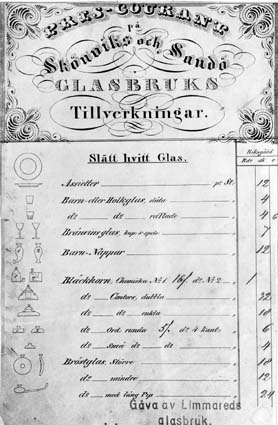 PRES-COURANT
på
Skönviks och Sandö
GLASBRUKS
Tillverkningar.
Slätt hvitt Glas.
Riksgäld
Rdr sk r
Assietter pr St. 12
Barn- eller Holkglas, släta " 4
dº dº refflade " 4
Bränvinsglas, kup. o. spets " 7
Barn-Nappar " 12
Bläckhorn, Chemiska Nº 1 16/ dº Nº 2 " 1
dº Contors, dubbla "
dº dº enkla " 10
dº Ord. runda 5/. dº 4 kant. " 6
dº Små dº dº " 4
Bröstglas, Större " 18
dº mindre " 12
dº med lång Pip " 24
Gåva av Limmareds
glasbruk.